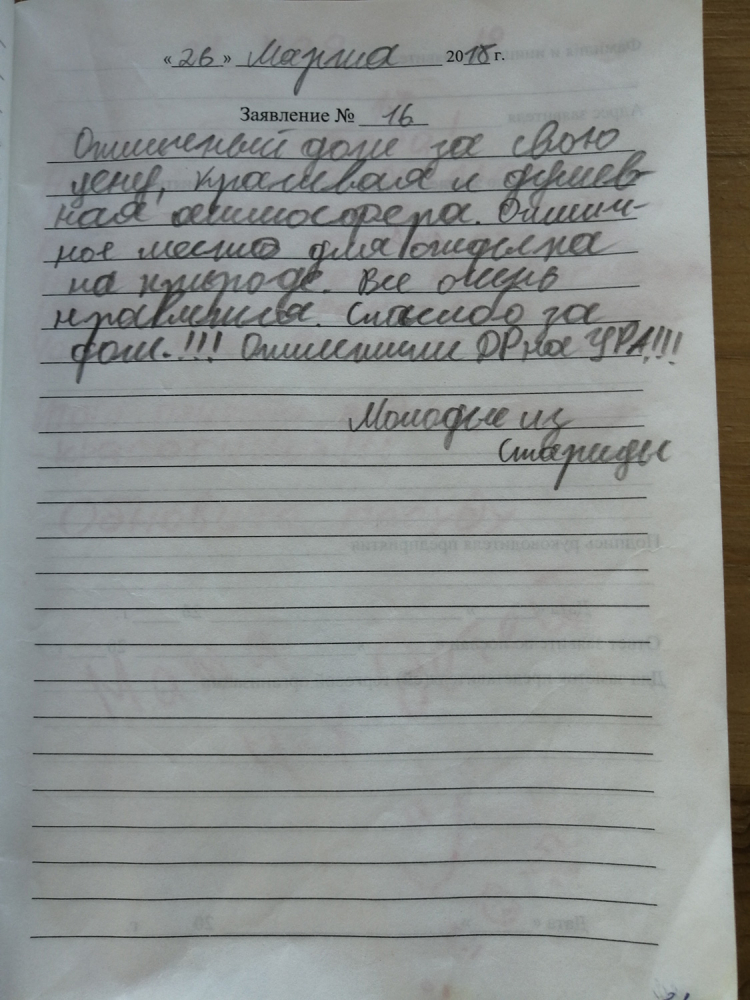 « 26 » Марта 2018 г.
Заявление № 16
Отличный дом за свою
цену, красивая и душев-
ная атмосфера. Отлич-
ное место для отдыха
на природе. Все очень
нравится. Спасибо за
дом.!!! Отметили ДР на УРА!!!
Молодые из
Старицы